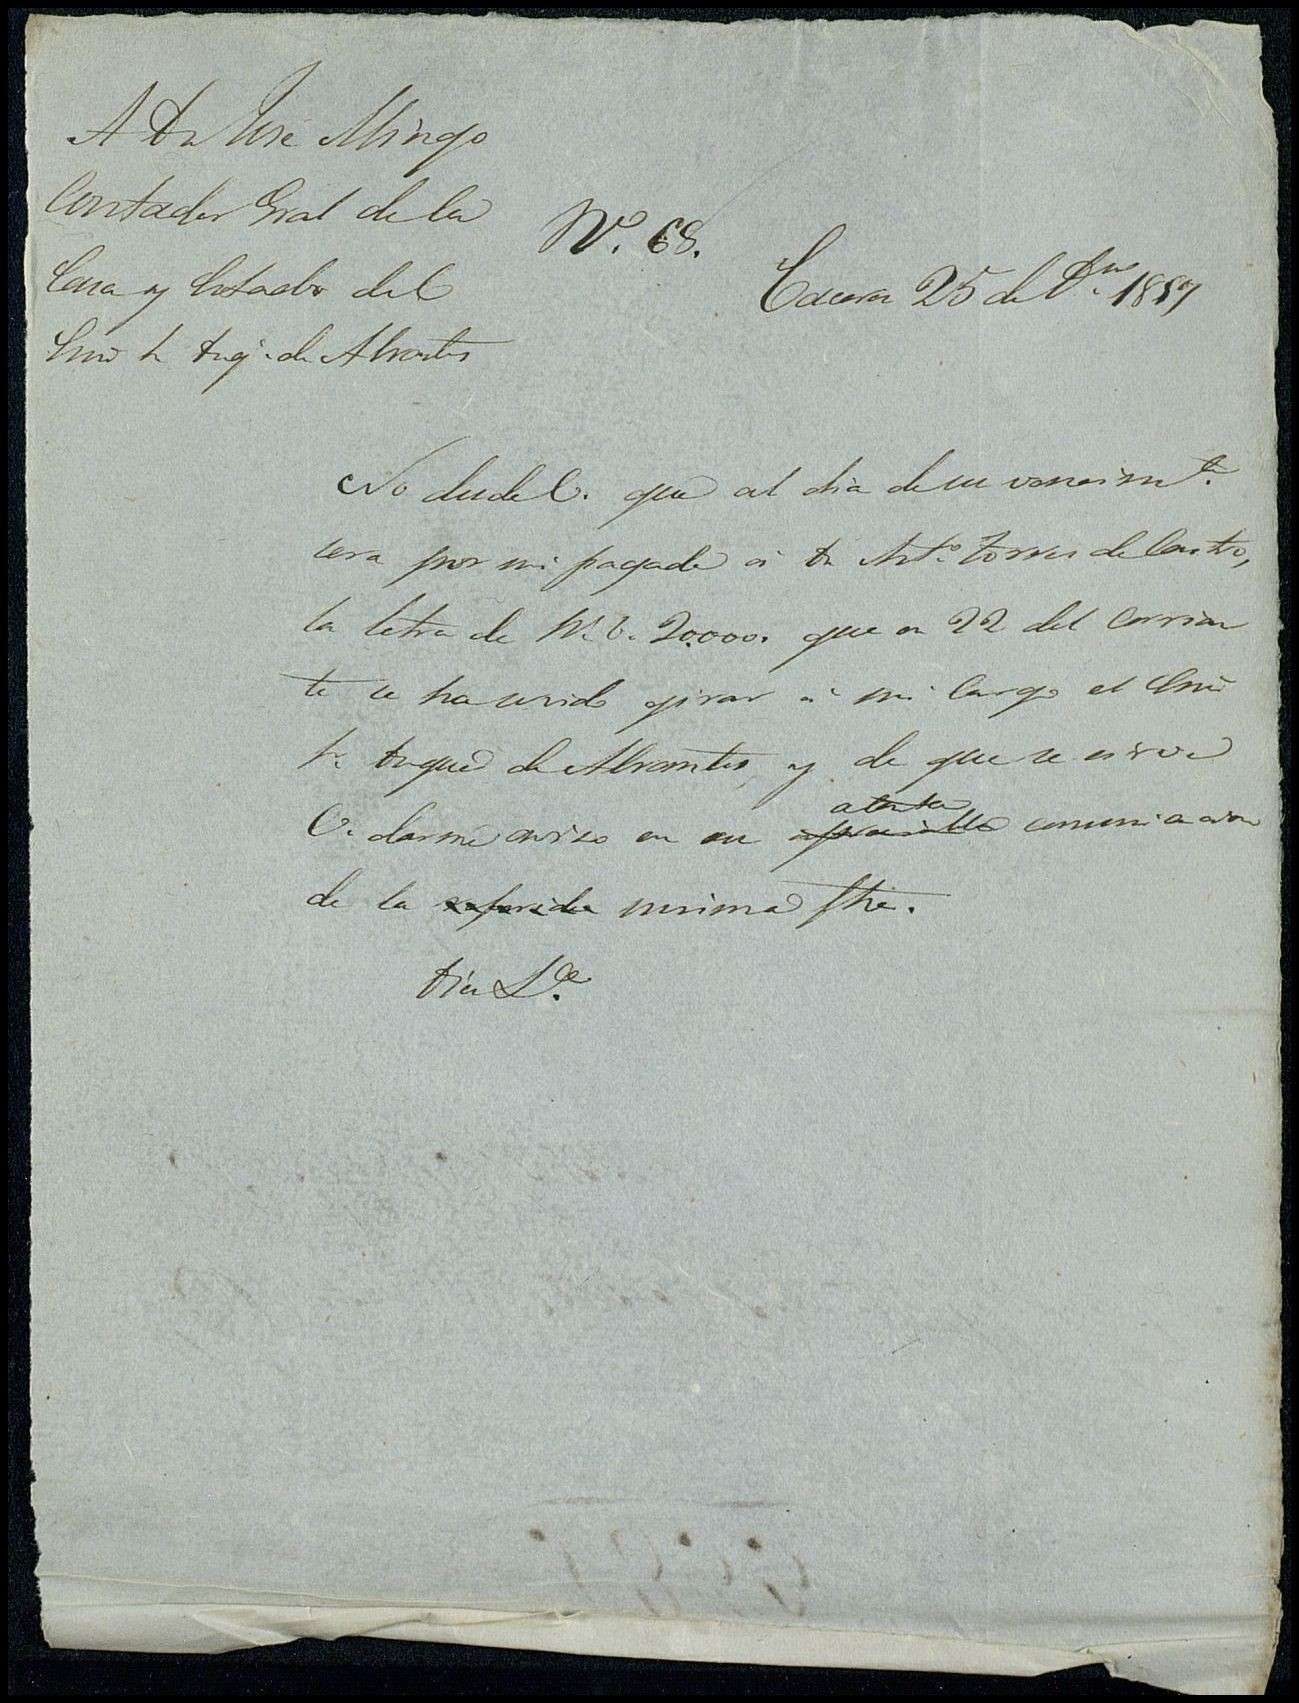 A Dn José Mingo
Contador Gral de la
Casa y Estado del
Emo Sr Duq.e de Abrantes
Nº. 68.
Caceres 25 de Dbre 1857
No dude V. que al dia de su vencimto.
sera por mi pagada á Dn Antº. Torres de Castro,
la letra de Rs. Vn. 20.000. que en 22 del corrien
te se ha servido girar á mi cargo el Emo
Sr. Duque de Abrantes, y de que se sirve
atenta
V. darme aviso en su apreciable comunicacion
de la referida misma fha.
Dios Gue.